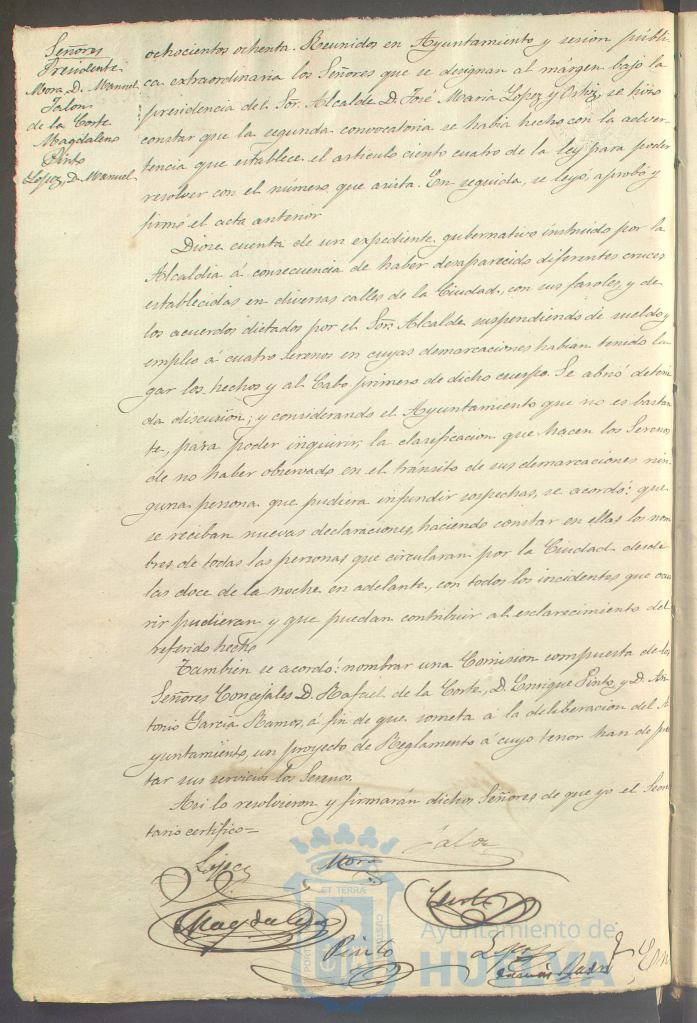 Señores
Presidente
Mora, D. Manuel
Jalon
de la Corte
Magdalena
Pinto
López, D. Manuel
ochocientos ochenta. Reunidos en Ayuntamiento y sesion públi
ca extraordinaria los Señores que se designan al márgen bajo la
presidencia del Sor. Alcalde D. José Maria López y Ortiz, se hizo
constar que la segunda convocatoria se habia hecho con la adver
tencia que establece el articulo ciento cuatro de la ley para poder
resolver con el número que asista. En seguida, se leyó, aprobó y
firmó el acta anterior
Diose cuenta de un expediente gubernativo instruido por la
Alcaldia á consecuencia de haber desaparecido diferentes cruces
establecidas en diversas calles de la Ciudad, con sus faroles, y de
los acuerdos dictados por el Sor. Alcalde suspendiendo de sueldo y
empleo á cuatro Serenos en cuyas demarcaciones habian tenido lu
gar los hechos y al Cabo primero de dicho cuerpo. Se abrió deteni
da discusion; y considerando el Ayuntamiento que no es bastan
te, para poder inquirir, la clasificacion que hacen los Serenos
de no haber observado en el tránsito de sus demarcaciones nin
guna persona que pudiera infundir sospechas, se acordó: que
se reciban nuevas declaraciones, haciendo constar en ellas los nom
bres de todas las personas que circularan por la Ciudad desde
las doce de la noche en adelante, con todos los incidentes que ocu
rir pudieran y que puedan contribuir al esclarecimiento del
referido hecho
Tambien se acordó: nombrar una Comision compuesta de los
Señores Concejales D. Rafael de la Corte, D. Enrique Pinto, y D. An
tonio Garcia Ramos, á fin de que someta á la deliberacion del A
yuntamiento, un proyecto de Reglamento á cuyo tenor han de pres
tar sus servicios los Serenos.
Asi lo resolvieron y firmarán dichos Señores de que yo el Secre
tario certifico=
López Mora Jalon
Magdalena Corte
Pinto López
ET TERRÆ
Ayuntamiento de
HUELVA